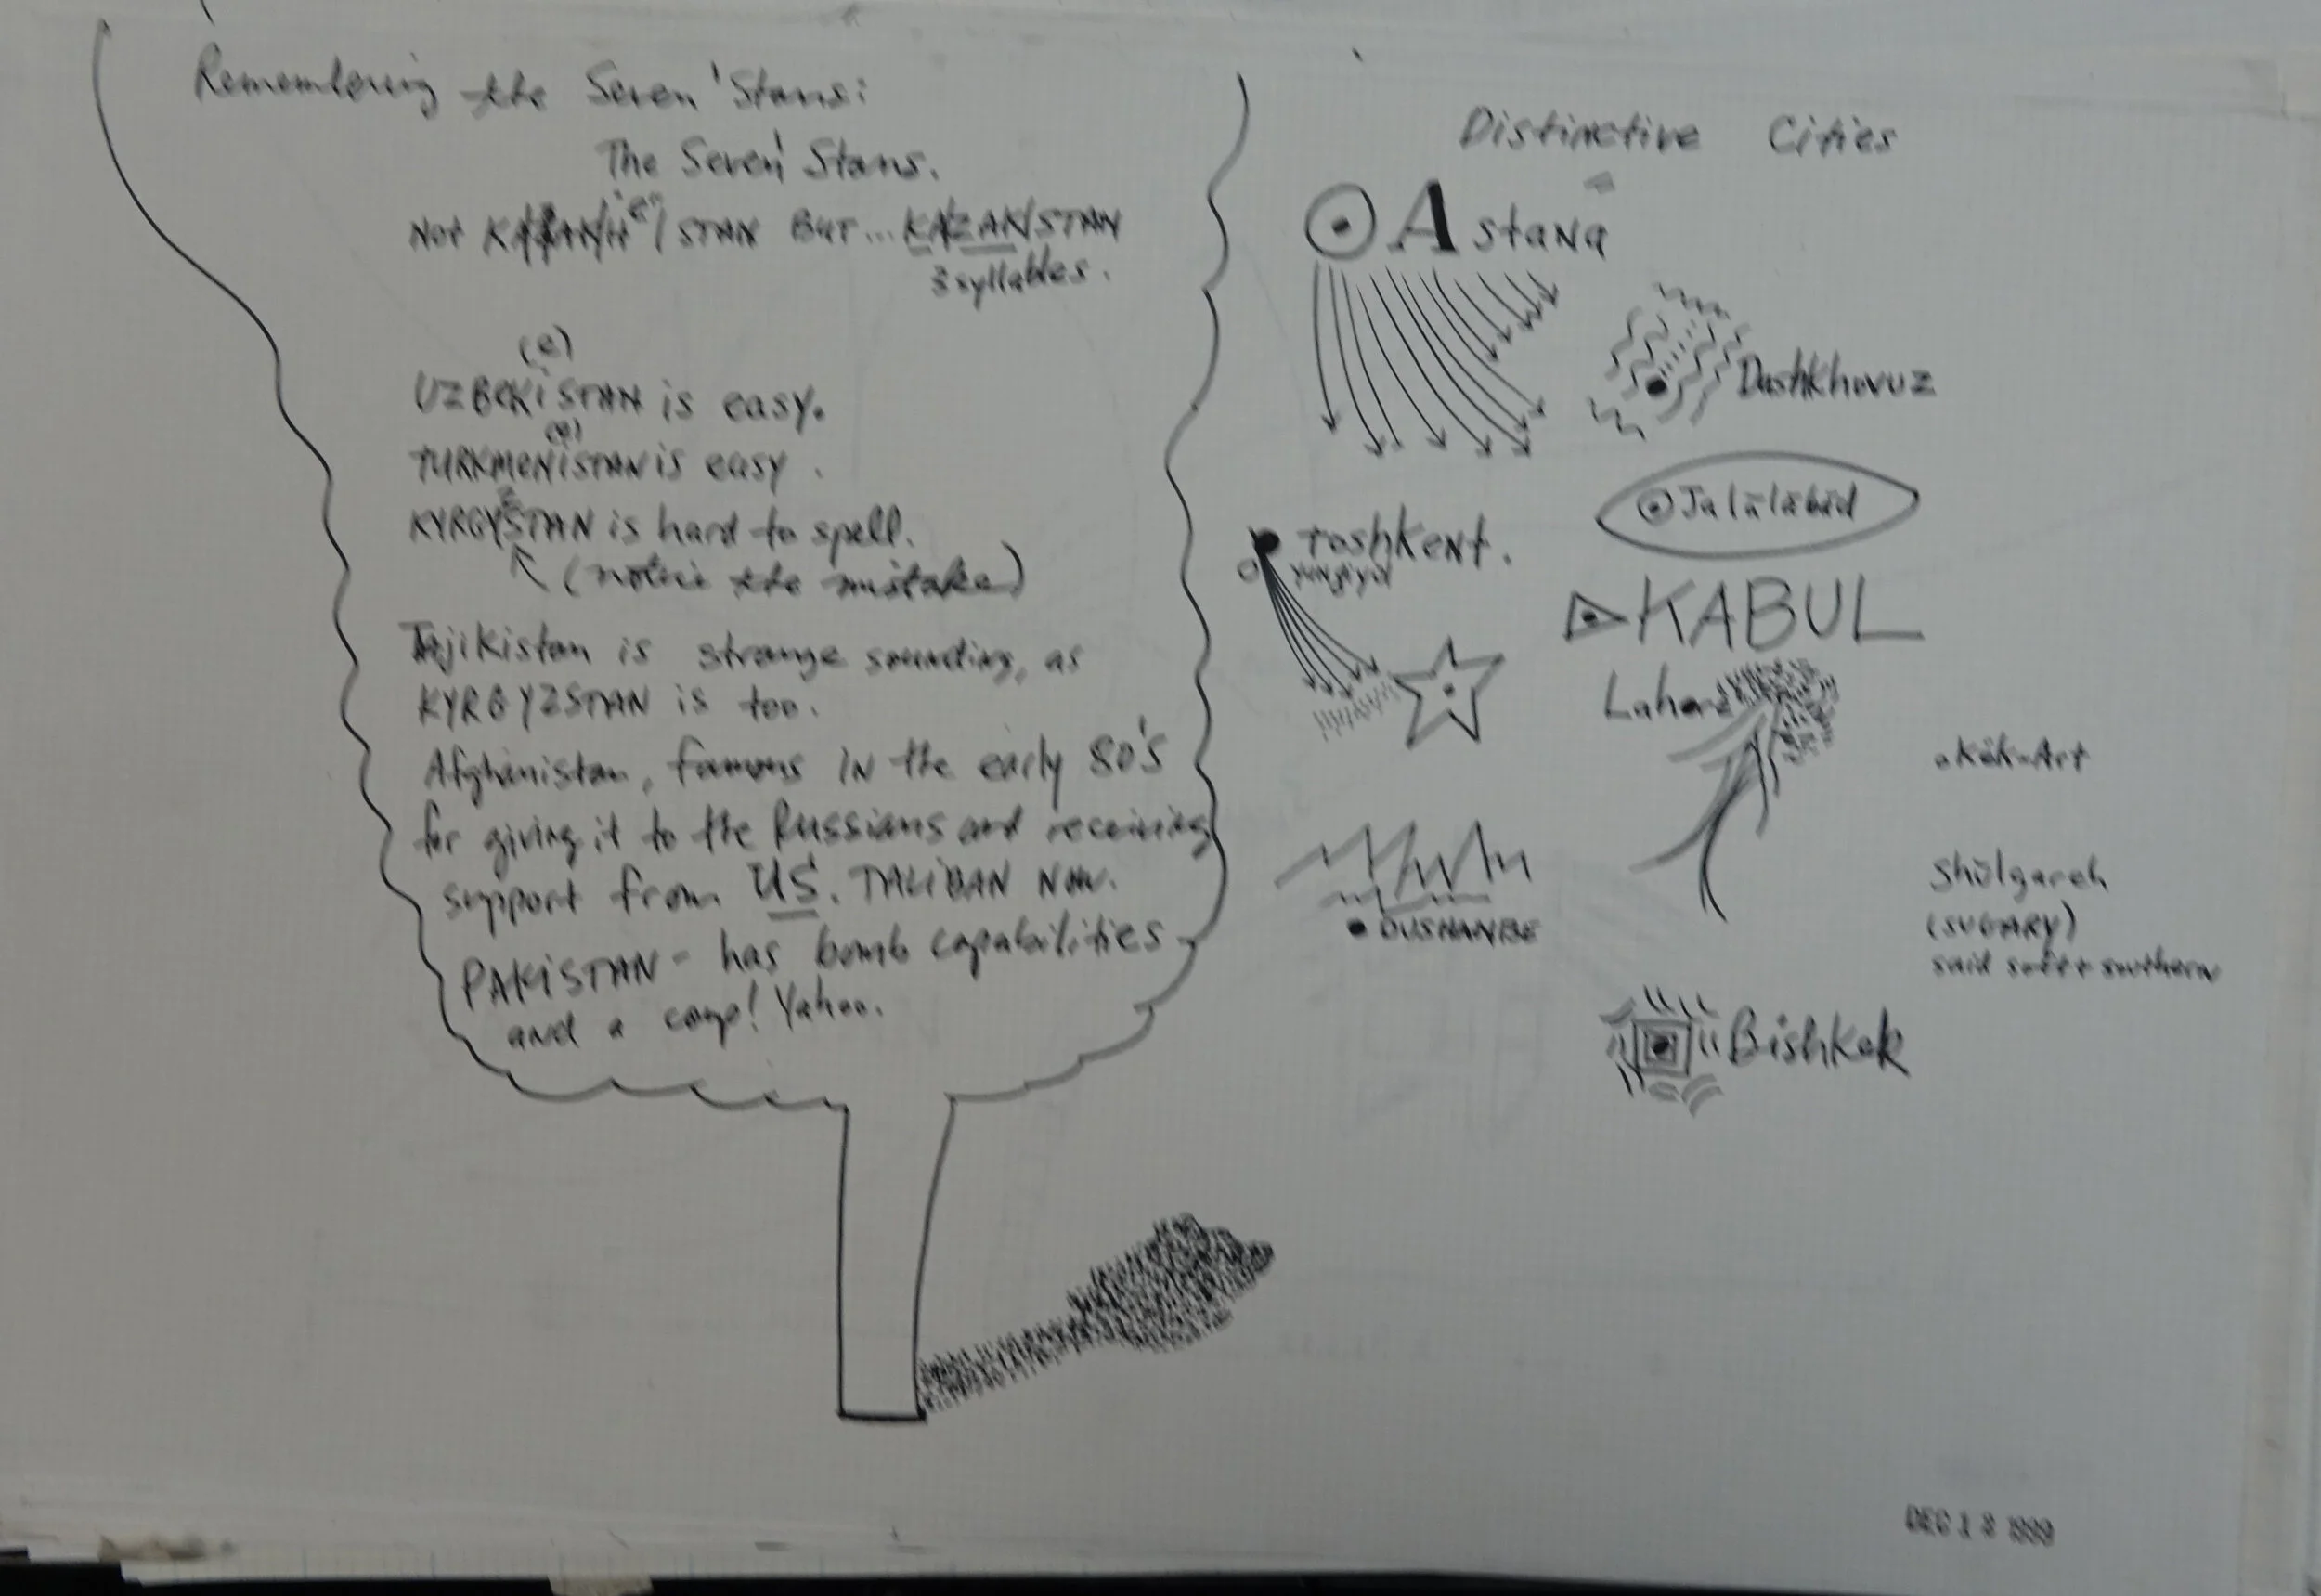 Remembering the Seven 'Stans:
The Seven 'Stans.
Not ISTAN BUT... KAZAKISTAN
3 syllables.
(e)
UZBEKiSTAN is easy.
(e)
TURKMENiSTAN is easy.
z
KYRGYSTAN is hard to spell.
(notice the mistake)
Tajikistan is strange sounding, as
KYRGYZSTAN is too.
Afghanistan, famous in the early 80's
for giving it to the Russians and receiving
support from US. TALIBAN NOW.
PAKiSTAN - has bomb capabilities
and a coup! Yahoo.
Distinctive Cities
Astana
Dashkhovuz
Jalālābād
Toshkent.
KABUL
Lahore
Kök-Art
DUSHANBE
Shōlgareh
(SUGARY)
said soft + southern
Bishkek
DEC 1 1999